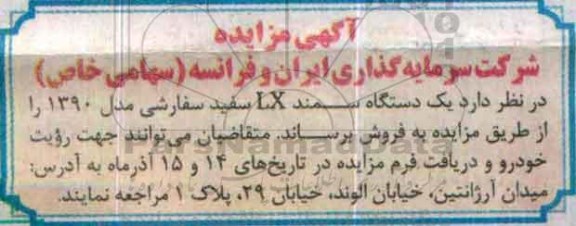 آگهی مزایده
شرکت سرمایه گذاری ایران و فرانسه (سهامی خاص)
در نظر دارد یک دستگاه سمند LX سفید سفارشی مدل ۱۳۹۰ را
از طریق مزایده به فروش برساند. متقاضیان می توانند جهت رؤیت
خودرو و دریافت فرم مزایده در تاریخ‌های ۱۴ و ۱۵ آذرماه به آدرس:
میدان آرژانتین، خیابان الوند، خیابان ۲۹، پلاک ۱ مراجعه نمایند.
ParsNamadData